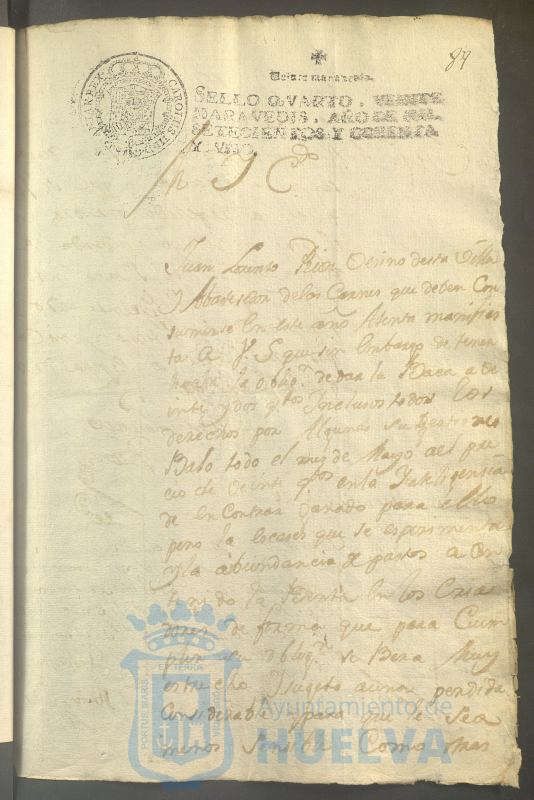 84
Veinte maravedis.
SELLO QVARTO, VEINTE
MARAVEDIS, AÑO DE MIL
SETECIENTOS Y OCHENTA
Y UNO.
CAROLUS III
Juan Lorenzo Desino desta Villa
Y Abastesedor de las Carnes que deben Con
sumirse en este año Atento manifies
ta A V. S. que sin Embargo de tener
la oblig.n de dar la Baca a Ve
inte y dos q.tos Inclusos todos los
derechos por Algunas
Bajo todo el mes de Mayo al pre
cio de Veinte q.tos en la Inteligencia
de encontrar Ganado para ello
pero la escases que se esperimenta
y la abundancia de pastos a
la Benta en los Cria
dores de forma que para Cum
plir su oblig.n se Bera Muy
estrecho Sugeto a una perdida
Considerable y para que le sea
menos Sensible Como
PORTUS MARIS ET TERRAE
Ayuntamiento de
HUELVA